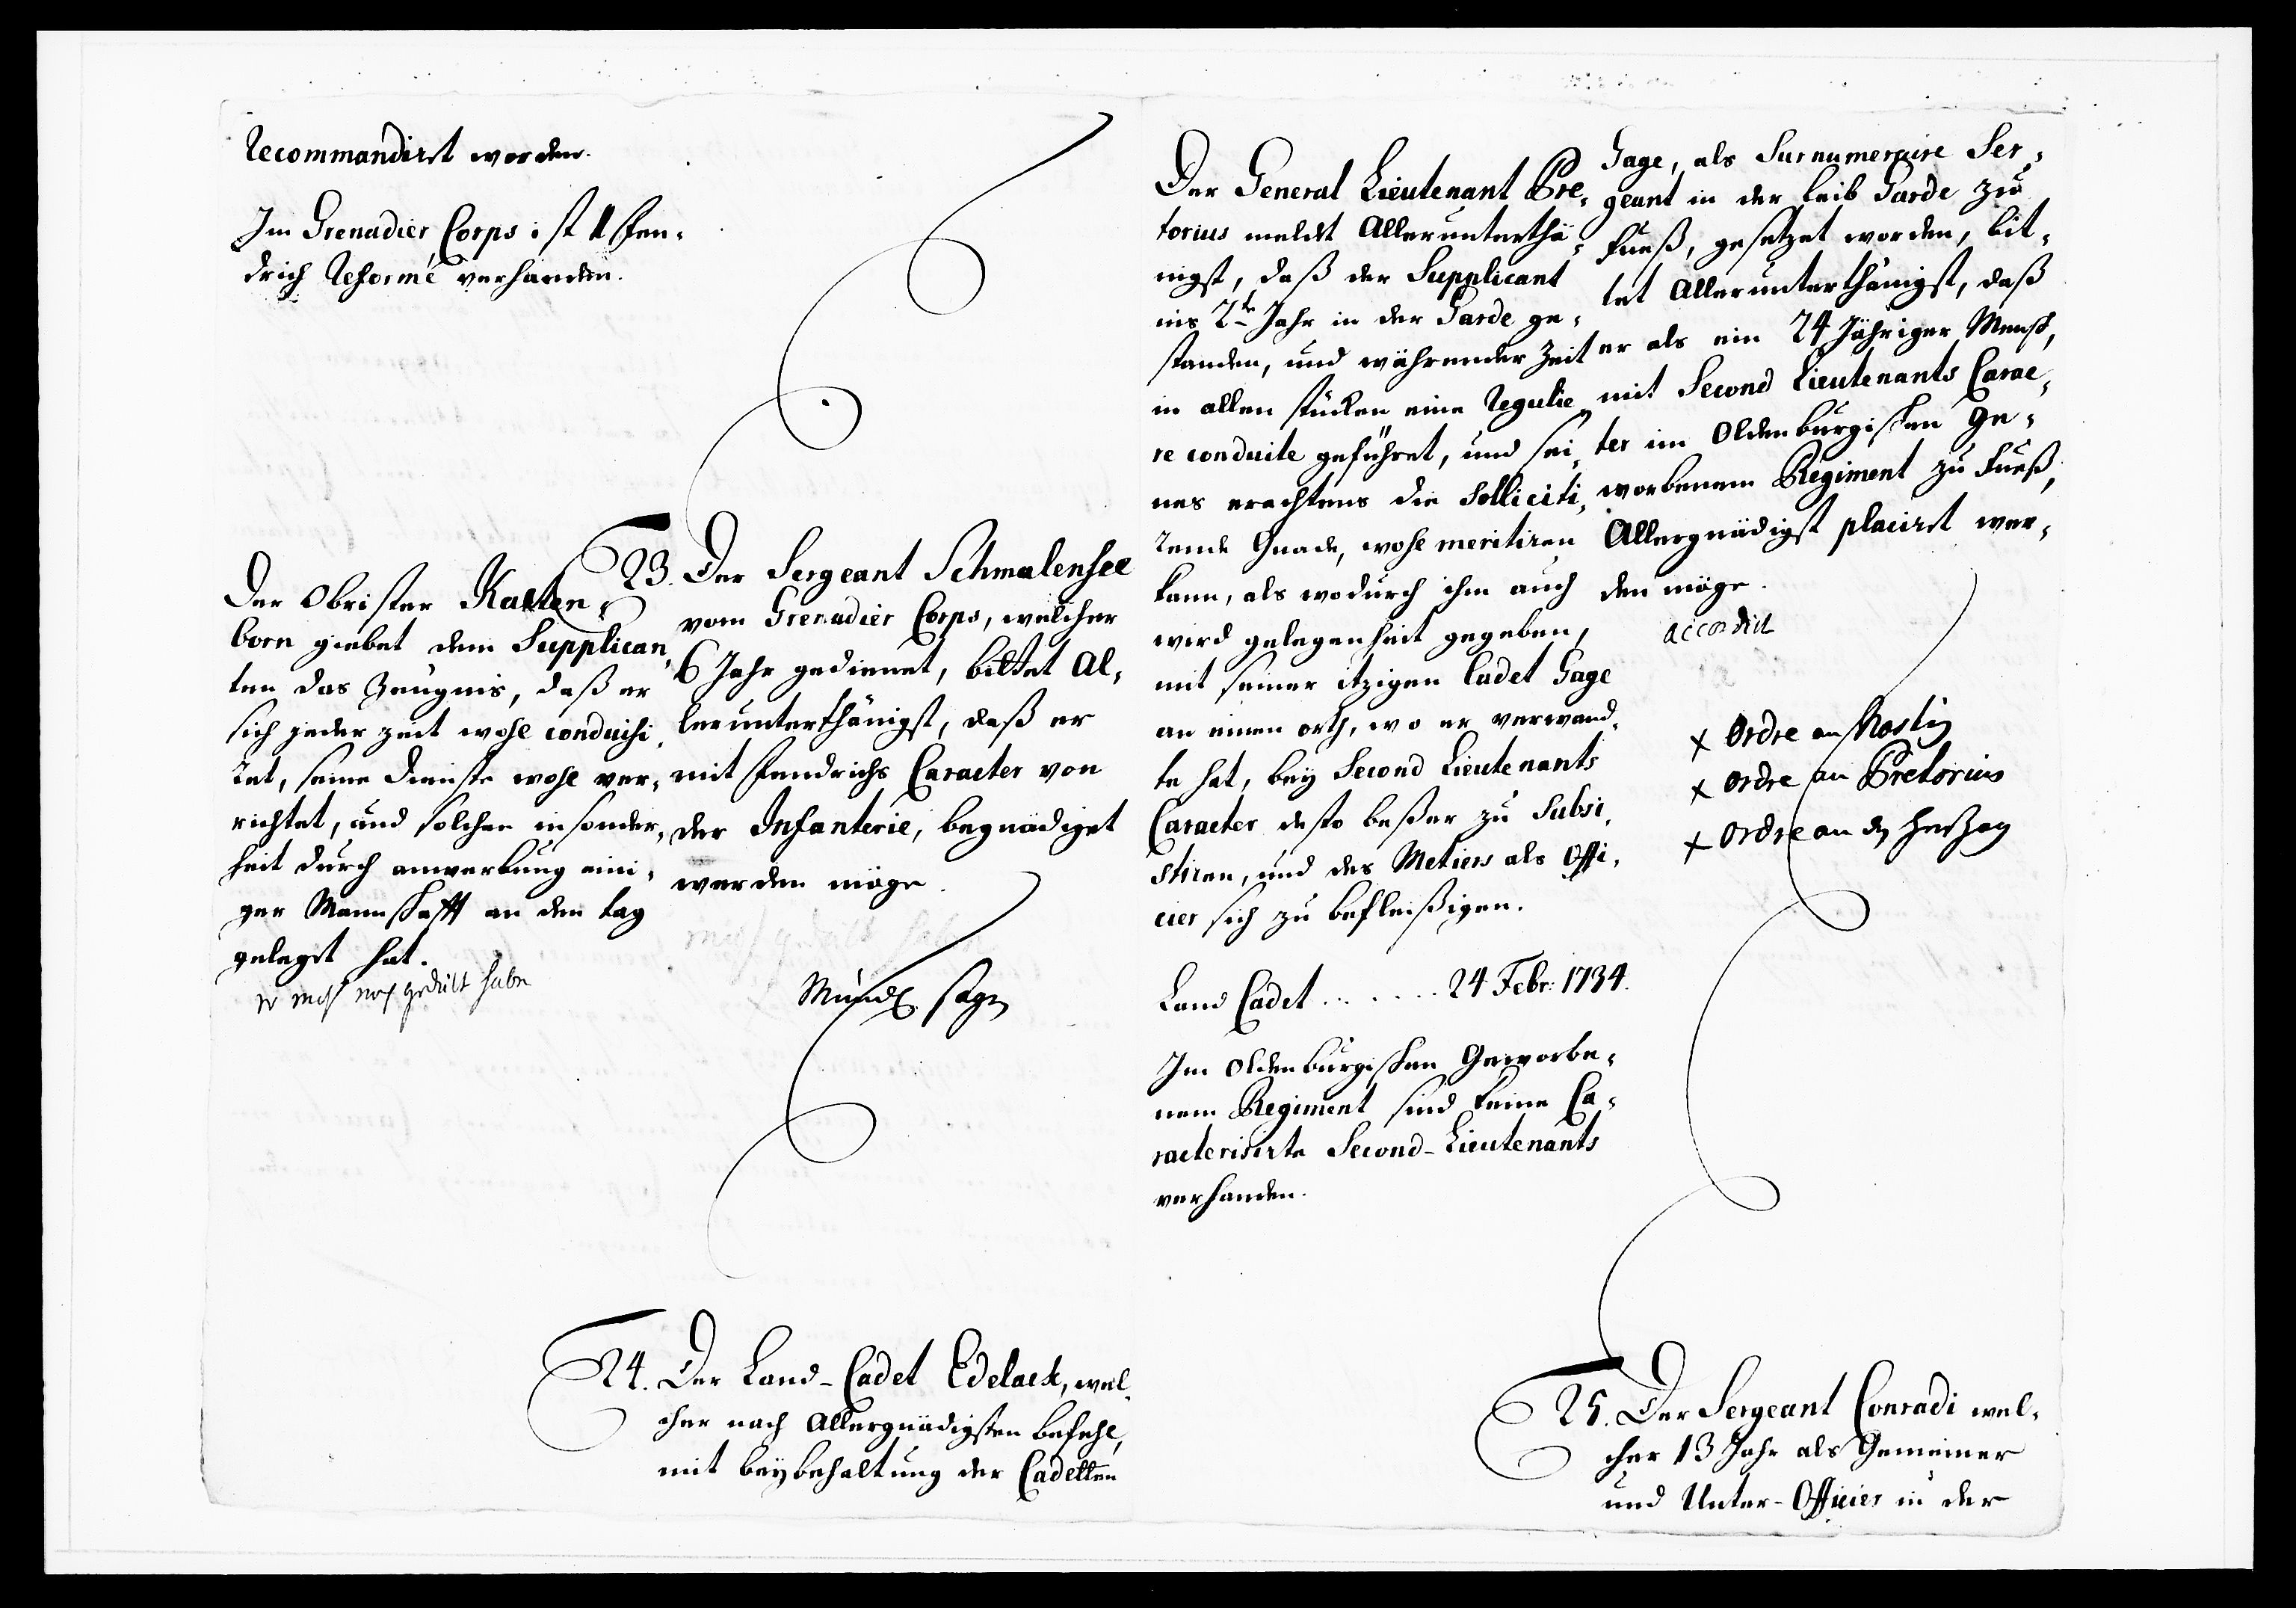 Recommandiret worden.
Im Grenadier Corps ist 1 Fen-
drich Reformé verhanden.
Der Obrister Kalten-
born giebet dem Supplican-
ten das Zeugnis, daß er
sich jeder zeit wohl conduisi-
ret, seine Dienste wohl ver-
richtet, und solches insonder-
heit durch anwerbung eini-
ger Mannschafft an den tag
geleget hat.
er muß noch gedült haben
23. Der Sergeant Schmalensee
vom Grenadier Corps, welcher
6 Jahr gedienet, bittet Al-
lerunterthänigst, daß er
mit Fendrichs Caracter von
der Infanterie, begnädiget
werden möge.
Mündl. sagen
24. Der Land-Cadet Edelack, wel-
cher nach Allergnädigsten befehl,
mit beybehaltung der Cadetten
Der General Lieutenant Pre-
torius meldet Allerunterthä-
nigst, daß der Supplicant
ins 2te Jahr in der Garde ge-
standen, und währender Zeit
in allen stücken eine Regulie-
re conduite geführet, und sei-
nes erachtens die Solliciti-
rende Gnade, wohl meritiren
kann, als wodurch ihm auch
wird gelegenheit gegeben,
mit seiner itzigen Cadet Gage
an einen orth, wo er verwand-
te hat, bey Second Lieutenants
Caracter desto beßer zu Subsi-
stiren, und des Metiers als Offi-
cier sich zu befleißigen.
Land Cadet . . . . . . 24 Febr: 1734.
Im Oldenburgischen Geworbe-
nem Regiment sind keine Ca-
racterisirte Second-Lieutenants
verhanden.
Gage, als Surnumeraire Ser-
geant in der Leib Garde zu
Fueß, gesetzet worden, bit-
tet Allerunterthänigst, daß
er als ein 24 Jähriger Mensch,
mit Second Lieutenants Carac-
ter im Oldenburgischen Ge-
worbenem Regiment zu Fueß,
Allergnädigst placiret wer-
den möge.
accordirt
x Ordre an Rostin
x Ordre an Pretorius
x Ordre an den Hertzog
25. Der Sergeant Conradi wel-
cher 13 Jahr als Gemeiner
und Unter-Officier in der